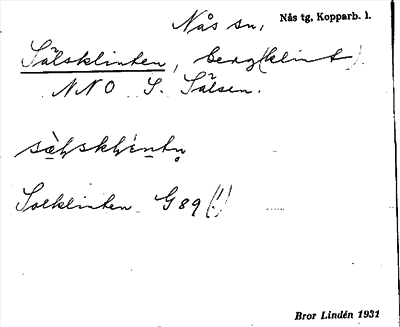 Nås sn, Nås tg, Kopparb. l.
Sälsklinten, berg (klint)
NNO S. Sälsen.
Solklinten G 89 (!)
Bror Lindén 1931